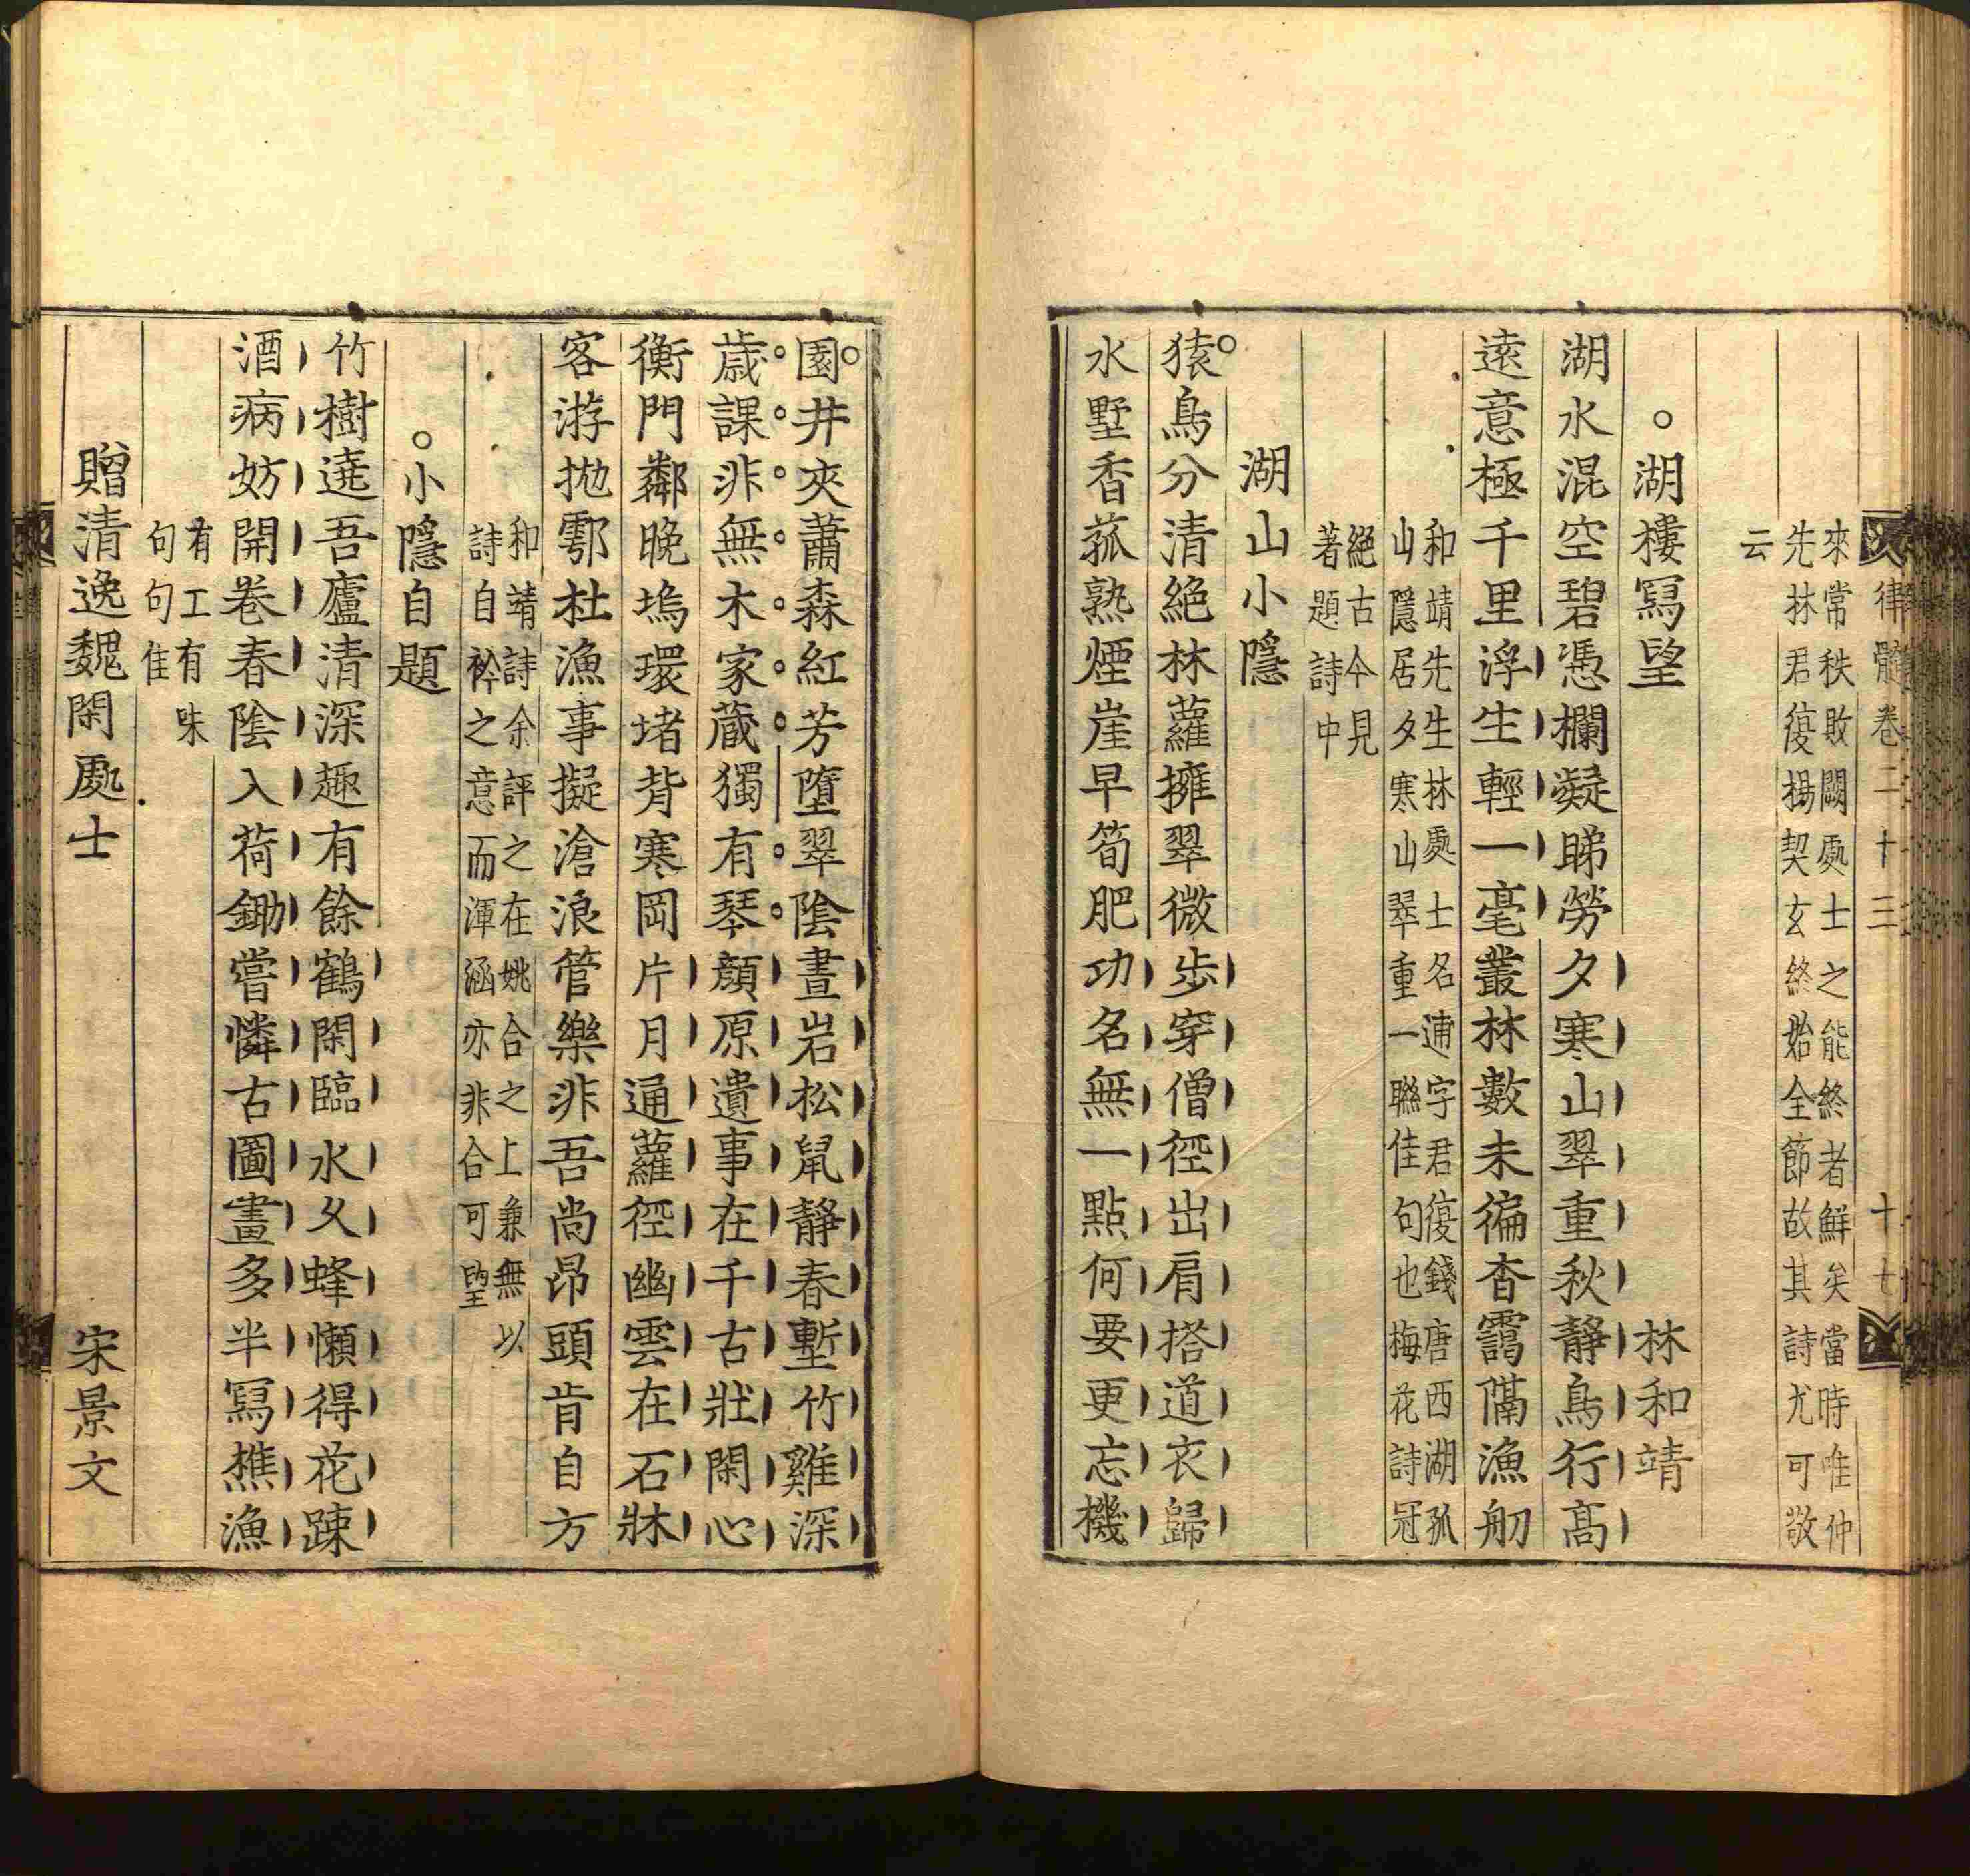 律髓卷二十三 十七
來常秩敗闕處士之能終者鮮矣當時唯仲
先林君復楊契玄終始全節故其詩尤可敬
云
○湖樓寫望 林和靖
湖水混空碧憑欄凝睇勞夕寒山翠重秋靜鳥行高
遠意極千里浮生輕一毫叢林數未徧杳靄隔漁舠
和靖先生林處士名逋字君復錢唐西湖孤
山隱居夕寒山翠重一聯佳句也梅花詩冠
絕古今見
著題詩中
湖山小隱
猿鳥分清絕林蘿擁翠微步穿僧徑出肩搭道衣歸
水墅香菰熟煙崖早筍肥功名無一點何要更忘機
園井夾蕭森紅芳墮翠陰晝岩松鼠靜春塹竹雞深
歲課非無木家藏獨有琴顏原遺事在千古壯閑心
衡門鄰晚塢環堵背寒岡片月通蘿徑幽雲在石牀
客游抛鄠杜漁事擬滄浪管樂非吾尚昂頭肯自方
和靖詩余評之在姚合之上兼無以
詩自衿之意而渾涵亦非合可望
○小隱自題
竹樹遶吾廬清深趣有餘鶴閑臨水久蜂懶得花踈
酒病妨開卷春陰入荷鋤嘗憐古圖畫多半寫樵漁
有工有味
句句佳
贈清逸魏閑處士 宋景文